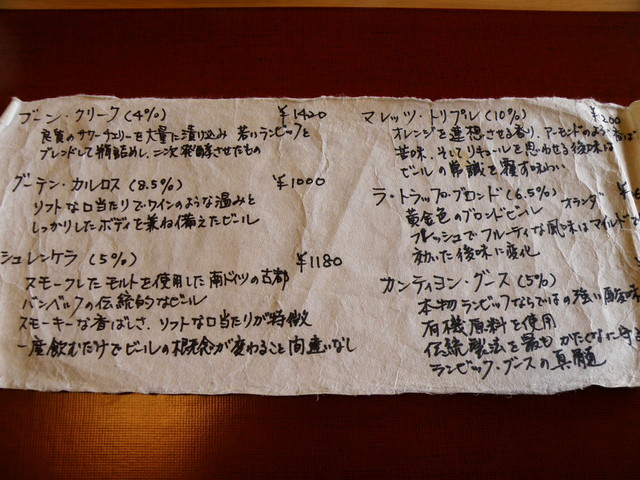 ブーン・クリーク(4%) ¥1420
良質のサワーチェリーを大量に漬け込み 若いランビックと
ブレンドして瓶詰めし、二次発酵させたもの
グーデン・カルロス(8.5%) ¥1000
ソフトな口当たりでワインのような温みと
しっかりしたボディを兼ね備えたビール
シュレンケラ(5%) ¥1180
スモークしたモルトを使用した南ドイツの古都
バンベルクの伝統的なビール
スモーキーな香ばしさ、ソフトな口当たりが特徴
一度飲むだけでビールの概念が変わること間違いなし
マレッツ・トリプル(10%)
オレンジを連想させる香り、アーモンドのような香ば
苦味、そしてリキュールを思わせる後味は
ビールの常識を覆す味わい
ラ・トラップ・ブロンド(6.5%) オランダ ¥
黄金色のブロンドビール
フレッシュでフルーティな風味はマイルドで
効いた後味に変化
カンティヨン・グース(5%)
本物ランビックならではの強い酸味
有機原料を使用
伝統製法を最もかたくなに守
ランビック・グースの真髄